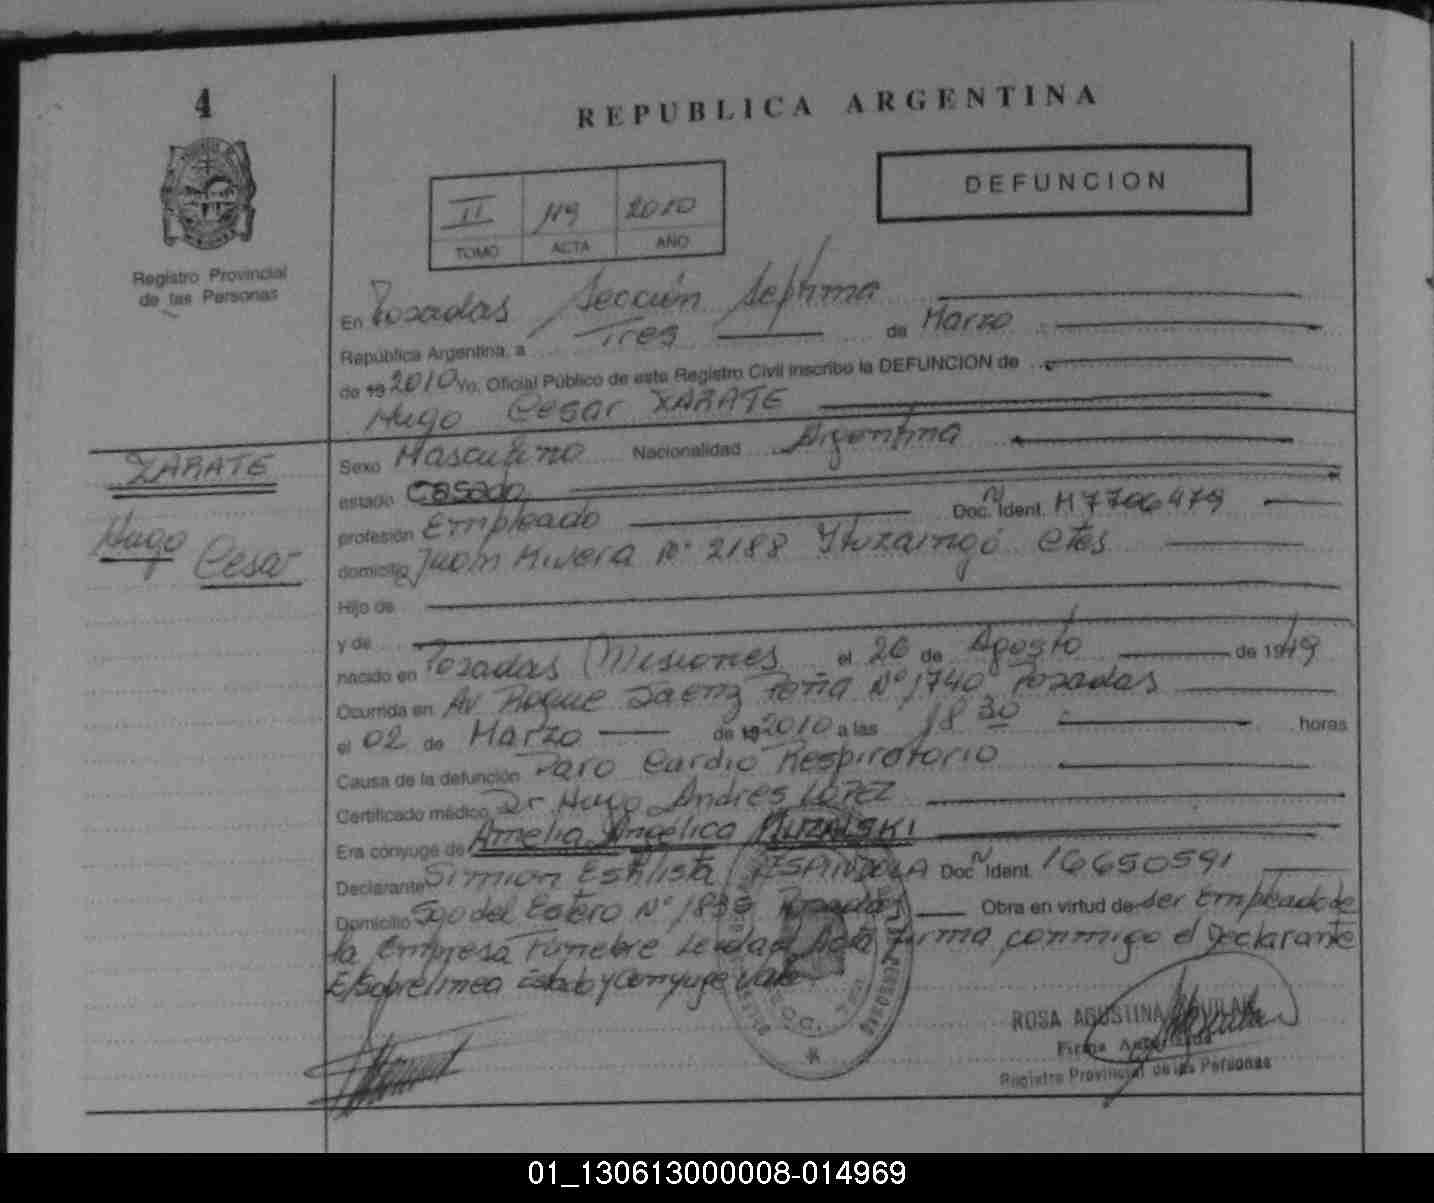 4
REPUBLICA ARGENTINA
DEFUNCION
II 119 2010
TOMO ACTA AÑO
Registro Provincial
de las Personas
En Posadas Sección Septima
República Argentina, a Tres de Marzo
de 19 2010 Yo, Oficial Público de este Registro Civil inscribo la DEFUNCION de
Hugo Cesar XARATE
XARATE
Hugo Cesar
Sexo Masculino Nacionalidad Argentina
estado Casado
profesión Empleado Doc. N Ident. M7706479
domicilio Juan Rivera Nº 2188 Ituzaingó Ctes
Hijo de
y de
nacido en Posadas Misiones el 26 de Agosto de 1949
Ocurrida en Av Roque Saenz Peña Nº 1740 Posadas
el 02 de Marzo de 19 2010 a las 18 30 horas
Causa de la defunción Paro Cardio Respiratorio
Certificado médico Dr Hugo Andres LOPEZ
Era cónyuge de Amelia Angélica
Declarante ESPINDOLA Doc. N Ident. 16650591
Domicilio Sgo del Estero Nº Posadas Obra en virtud de ser Empleado de
la Empresa Funebre Leida el Acta firma conmigo el Declarante
E/Sobrelinea Estado y Conyuge Vale
ROSA AGUSTINA AGUILAR
Firma Autorizada
Registro Provincial de las Personas
01_130613000008-014969